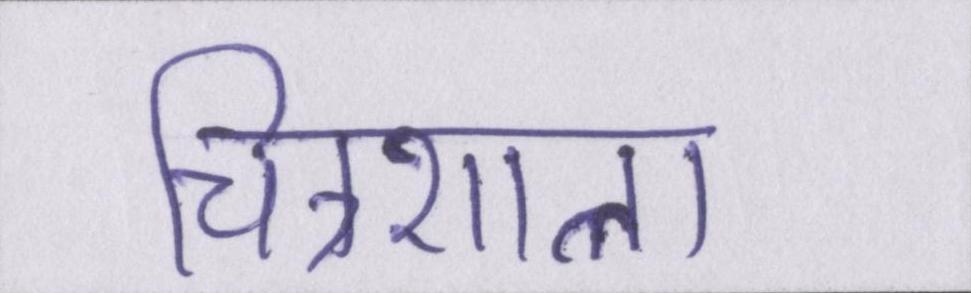 चित्रशाला